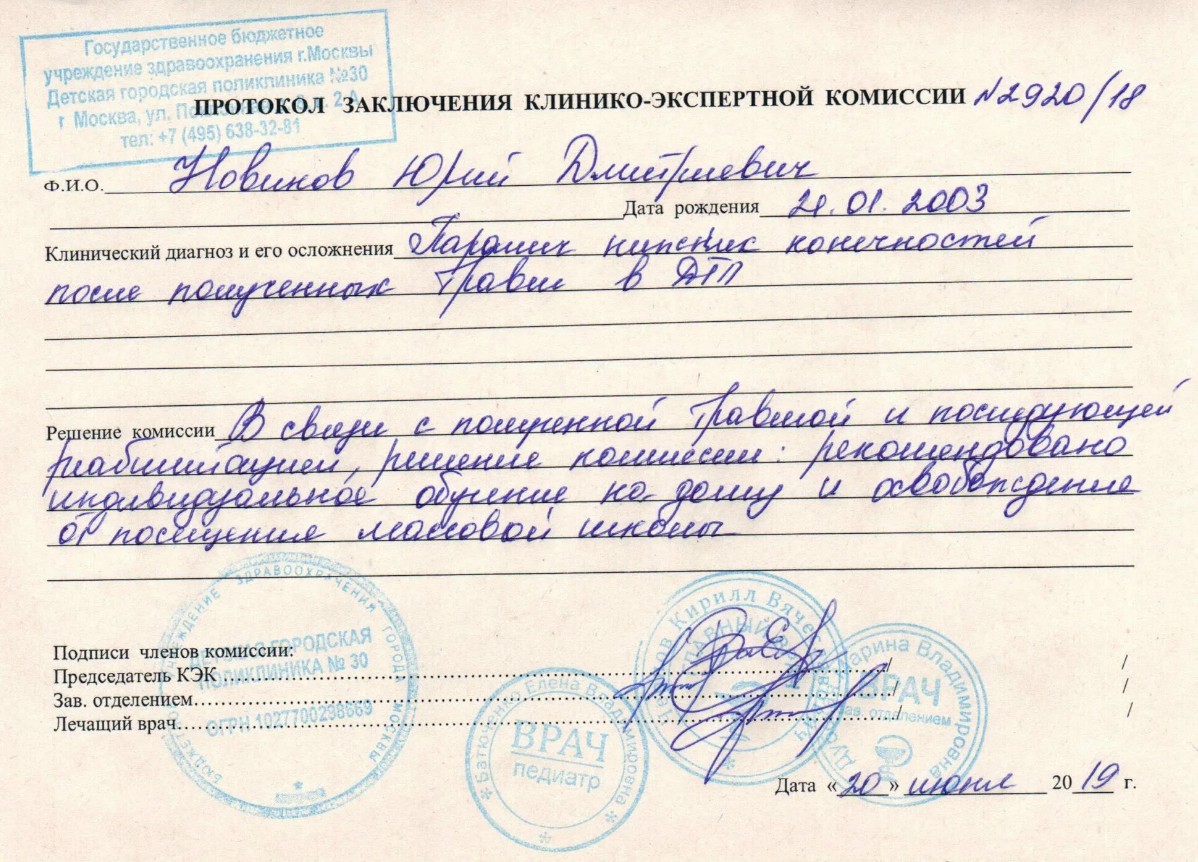 Государственное бюджетное
учреждение здравоохранения г.Москвы
Детская городская поликлиника №30
г Москва, ул. 2 А
тел: +7 (495) 638-32-81
ПРОТОКОЛ ЗАКЛЮЧЕНИЯ КЛИНИКО-ЭКСПЕРТНОЙ КОМИССИИ №2920/18
Ф.И.О. Новиков Юрий Дмитриевич
Дата рождения 21.01.2003
Клинический диагноз и его осложнения Паралич нижних конечностей
после полученных травм в ДТП
Решение комиссии В связи с полученной травмой и последующей
реабилитацией, решение комиссии: рекомендовано
индивидуальное обучение на дому и освобождение
от посещения массовой школы
УЧРЕЖДЕНИЕ ЗДРАВООХРАНЕНИЯ ГОРОДА МОСКВЫ
ДЕТСКАЯ ГОРОДСКАЯ
ПОЛИКЛИНИКА № 30
ОГРН 1027700298669
Подписи членов комиссии:
Председатель КЭК /
Зав. отделением /
Лечащий врач /
Кирилл
Батюченко Елена Владимировна
ВРАЧ
педиатр
Марина Владимировна
ВРАЧ
зав. отделением
Дата «20» июня 2019 г.